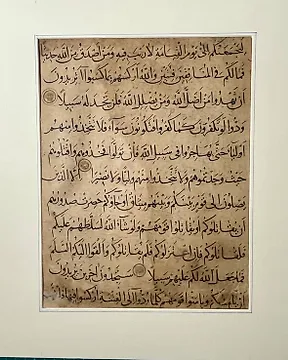 ليجمعنكم الى يوم القيامة لا ريب فيه ومن اصدق من الله حديثا
فما لكم في المنافقين فئتين والله اركسهم بما كسبوا اتريدون
ان تهدوا من اضل الله ومن يضلل الله فلن تجد له سبيلا
ودوا لو تكفرون كما كفروا فتكونون سواء فلا تتخذوا منهم
اولياء حتى يهاجروا في سبيل الله فان تولوا فخذوهم واقتلوهم
حيث وجدتموهم ولا تتخذوا منهم وليا ولا نصيرا الا الذين
يصلون الى قوم بينكم وبينهم ميثاق او جاؤكم حصرت صدورهم
ان يقاتلوكم او يقاتلوا قومهم ولو شاء الله لسلطهم عليكم
فلقاتلوكم فان اعتزلوكم فلم يقاتلوكم والقوا اليكم السلم
فما جعل الله لكم عليهم سبيلا ستجدون اخرين يريدون
ان يأمنوكم ويأمنوا قومهم كلما ردوا الى الفتنة اركسوا فيها فان